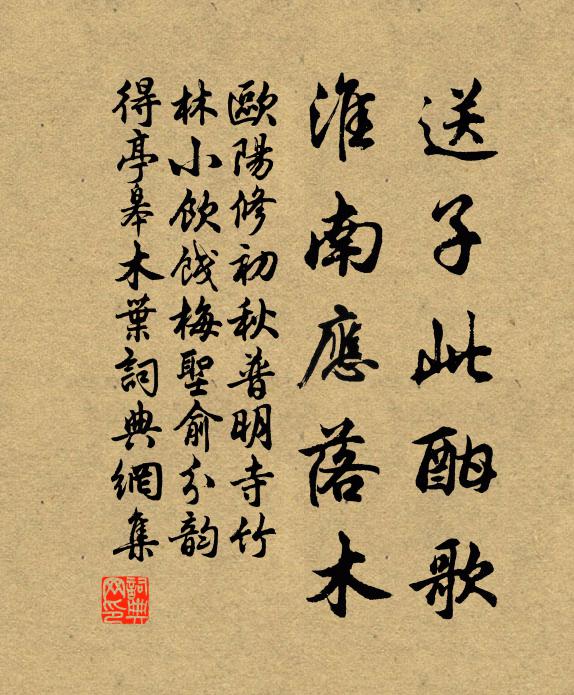 送子此酣歌
淮南應落木
歐陽修初秋普明寺竹
林小飲餞梅聖俞分韵
得亭皋木葉詞典網集
詞典
网印